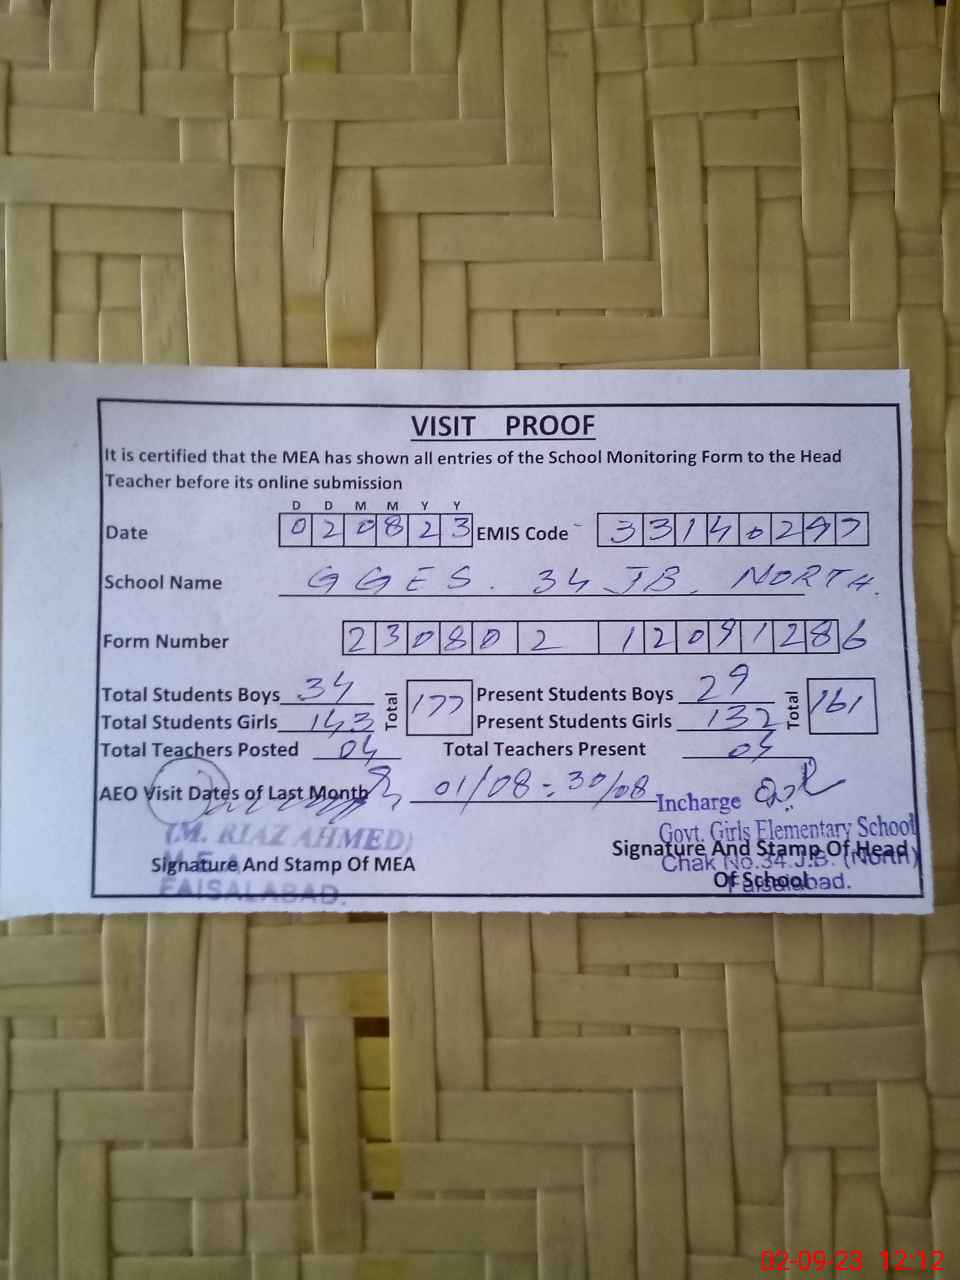 VISIT PROOF
It is certified that the MEA has shown all entries of the School Monitoring Form to the Head
Teacher before its online submission
D D M M Y Y
Date 020823 EMIS Code 33140297
School Name GGES. 34 JB. NORTH.
Form Number 230802 12091286
Total Students Boys 34 Total 177 Present Students Boys 29 Total 161
Total Students Girls 143 Present Students Girls 132
Total Teachers Posted 04 Total Teachers Present 04
AEO Visit Dates of Last Month 01/08 - 30/08
Incharge
(M. RIAZ AHMED)
M.E.A
FAISALABAD.
Signature And Stamp Of MEA
Govt. Girls Elementary School
Chak No.34.J.B. (North)
Faisalabad.
Signature And Stamp Of Head
Of School
02-09-23 12:12